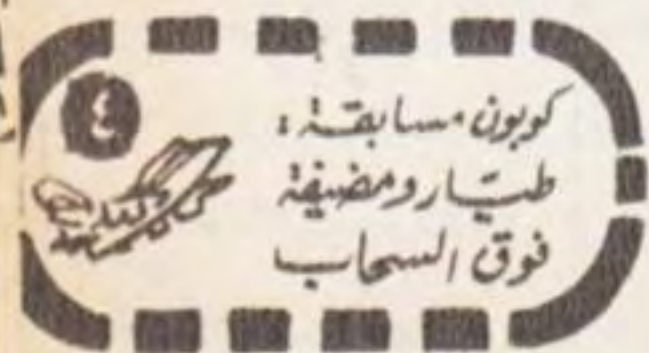 ٤
كوبون مسابقة :
طيّار ومضيفة
فوق السحاب